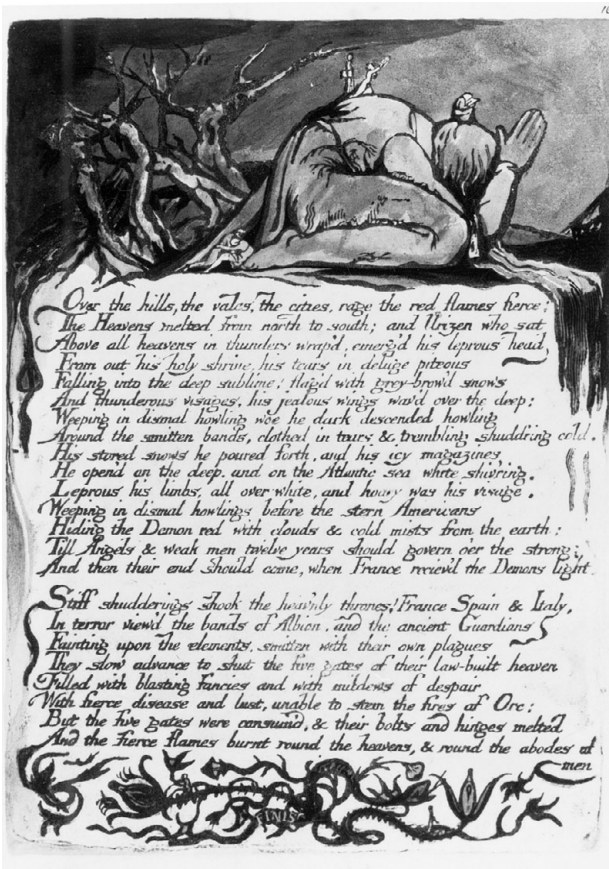 16
Over the hills, the vales, the cities, rage the red flames fierce;
The Heavens melted from north to south; and Urizen who sat
Above all heavens in thunders wrap'd, emerg'd his leprous head
From out his holy shrine, his tears in deluge piteous
Falling into the deep sublime! flag'd with grey-brow'd snows
And thunderous visages, his jealous wings wav'd over the deep;
Weeping in dismal howling woe he dark descended howling
Around the smitten bands, clothed in tears & trembling shudd'ring cold.
His stored snows he poured forth, and his icy magazines
He open'd on the deep, and on the Atlantic sea white shiv'ring.
Leprous his limbs, all over white, and hoary was his visage.
Weeping in dismal howlings before the stern Americans
Hiding the Demon red with clouds & cold mists from the earth;
Till Angels & weak men twelve years should govern o'er the strong;
And then their end should come, when France reciev'd the Demons light.
Stiff shudderings shook the heav'nly thrones! France Spain & Italy,
In terror view'd the bands of Albion, and the ancient Guardians
Fainting upon the elements, smitten with their own plagues
They slow advance to shut the five gates of their law-built heaven
Filled with blasting fancies and with mildews of despair
With fierce disease and lust, unable to stem the fires of Orc;
But the five gates were consum'd, & their bolts and hinges melted
And the fierce flames burnt round the heavens, & round the abodes of
men
FINIS